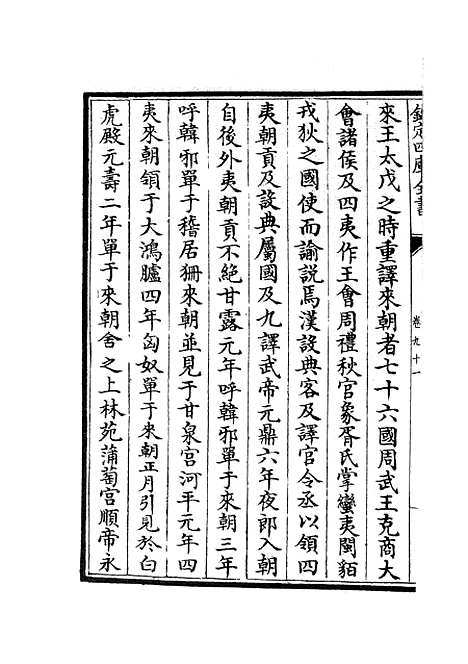 欽定四庫全書
卷九十一
來王太戊之時重譯來朝者七十六國周武王克商大
會諸侯及四夷作王會周禮秋官象胥氏掌蠻夷閩貊
戎狄之國使而諭說焉漢設典客及譯官令丞以領四
夷朝貢及設典屬國及九譯武帝元鼎六年夜郎入朝
自後外夷朝貢不絕甘露元年呼韓邪單于來朝三年
呼韓邪單于稽居狦來朝並見于甘泉宮河平元年四
夷來朝領于大鴻臚四年匈奴單于來朝正月引見於白
虎殿元壽二年單于來朝舍之上林苑蒲萄宮順帝永